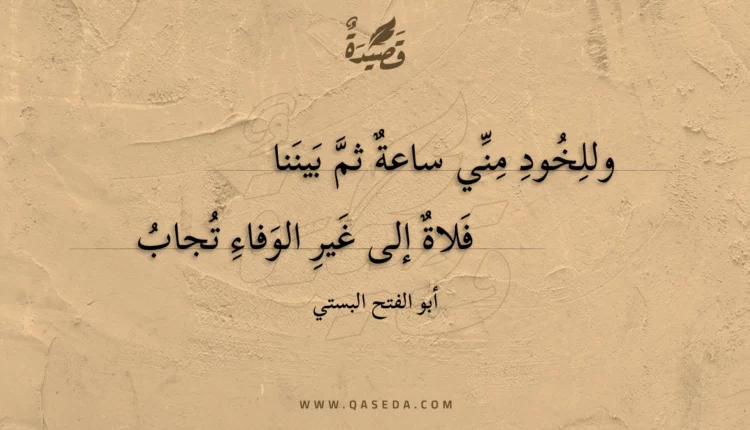 قَصِيدَةٌ
وللِخُودِ مِنِّي ساعةٌ ثمَّ بَينَنا
فَلاةٌ إلى غَيرِ الوَفاءِ تُجابُ
أبو الفتح البستي
WWW.QASEDA.COM